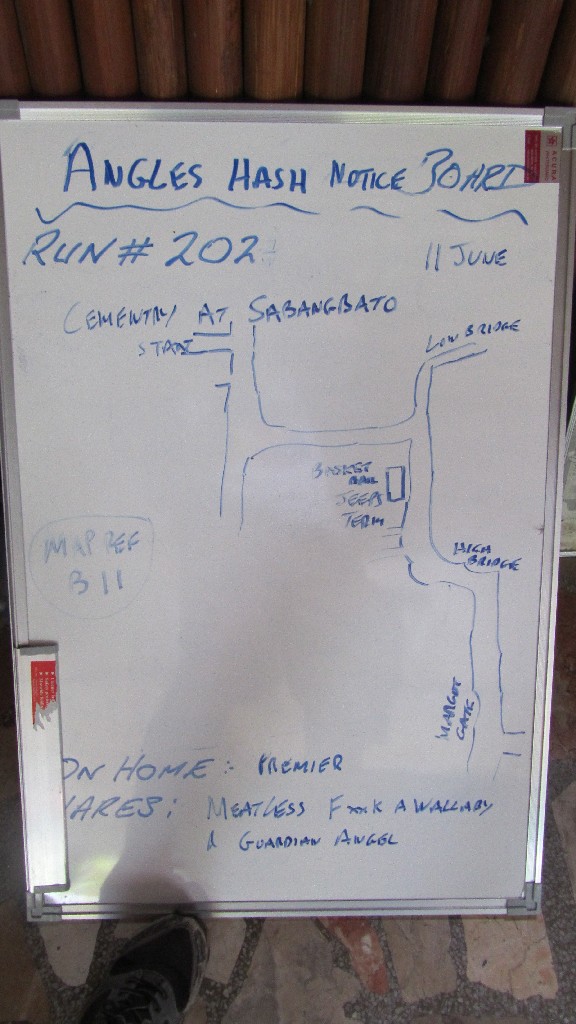 ANGLES HASH NOTICE BOARD
RUN # 202
11 JUNE
CEMENTRY AT SABANGBATO
START
LOW BRIDGE
BASKET
BALL
JEEPS
TERM
MAP REF
B 11
HIGH
BRIDGE
MARGOT
GATE
ON HOME :- PREMIER
HARES: MEATLESS FxxK A WALLABY
& GUARDIAN ANGEL